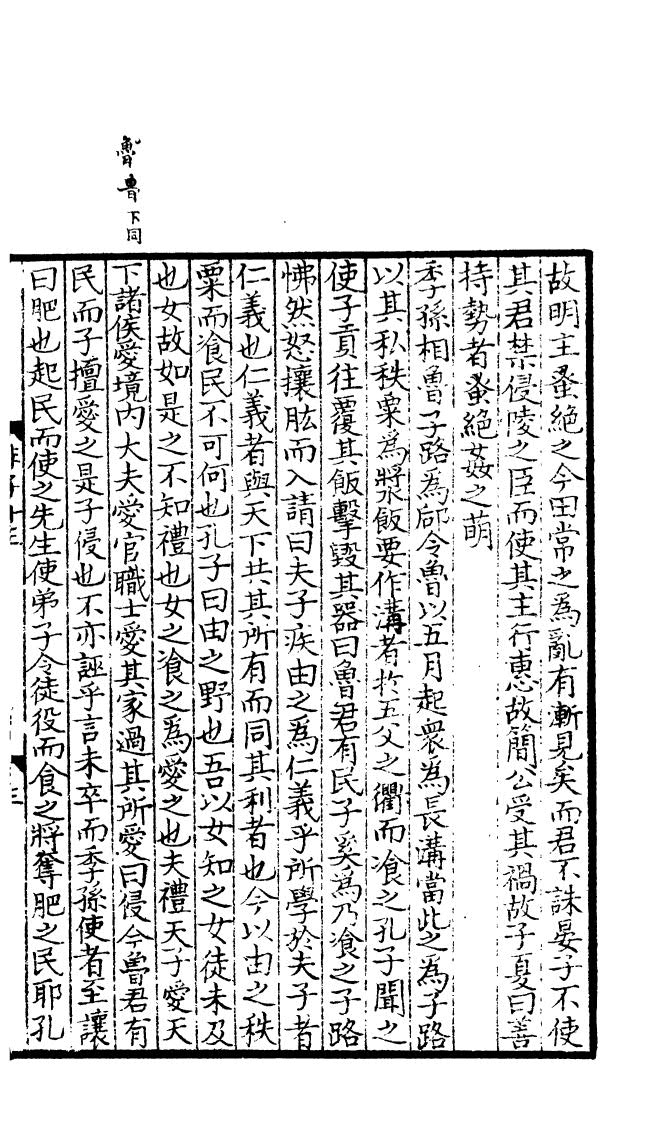 魯魯下同
故明主蚤絶之今田常之為亂有漸見矣而君不誅晏子不使
其君禁侵陵之臣而使其主行惠故簡公受其禍故子夏曰善
持勢者蚤絶姦之萌
季孫相魯子路為郈令魯以五月起衆為長溝當此之為子路
以其私秩粟為漿飯要作溝者於五父之衢而飡之孔子聞之
使子貢往覆其飯擊毀其器曰魯君有民子奚為乃飡之子路
怫然怒攘肱而入請曰夫子疾由之為仁義乎所學於夫子者
仁義也仁義者與天下共其所有而同其利者也今以由之秩
粟而飡民不可何也孔子曰由之野也吾以女知之女徒未及
也女故如是之不知禮也女之飡之為愛之也夫禮天子愛天
下諸侯愛境内大夫愛官職士愛其家過其所愛曰侵今魯君有
民而子擅愛之是子侵也不亦誣乎言未卒而季孫使者至讓
曰肥也起民而使之先生使弟子令徒役而飡之將奪肥之民耶孔